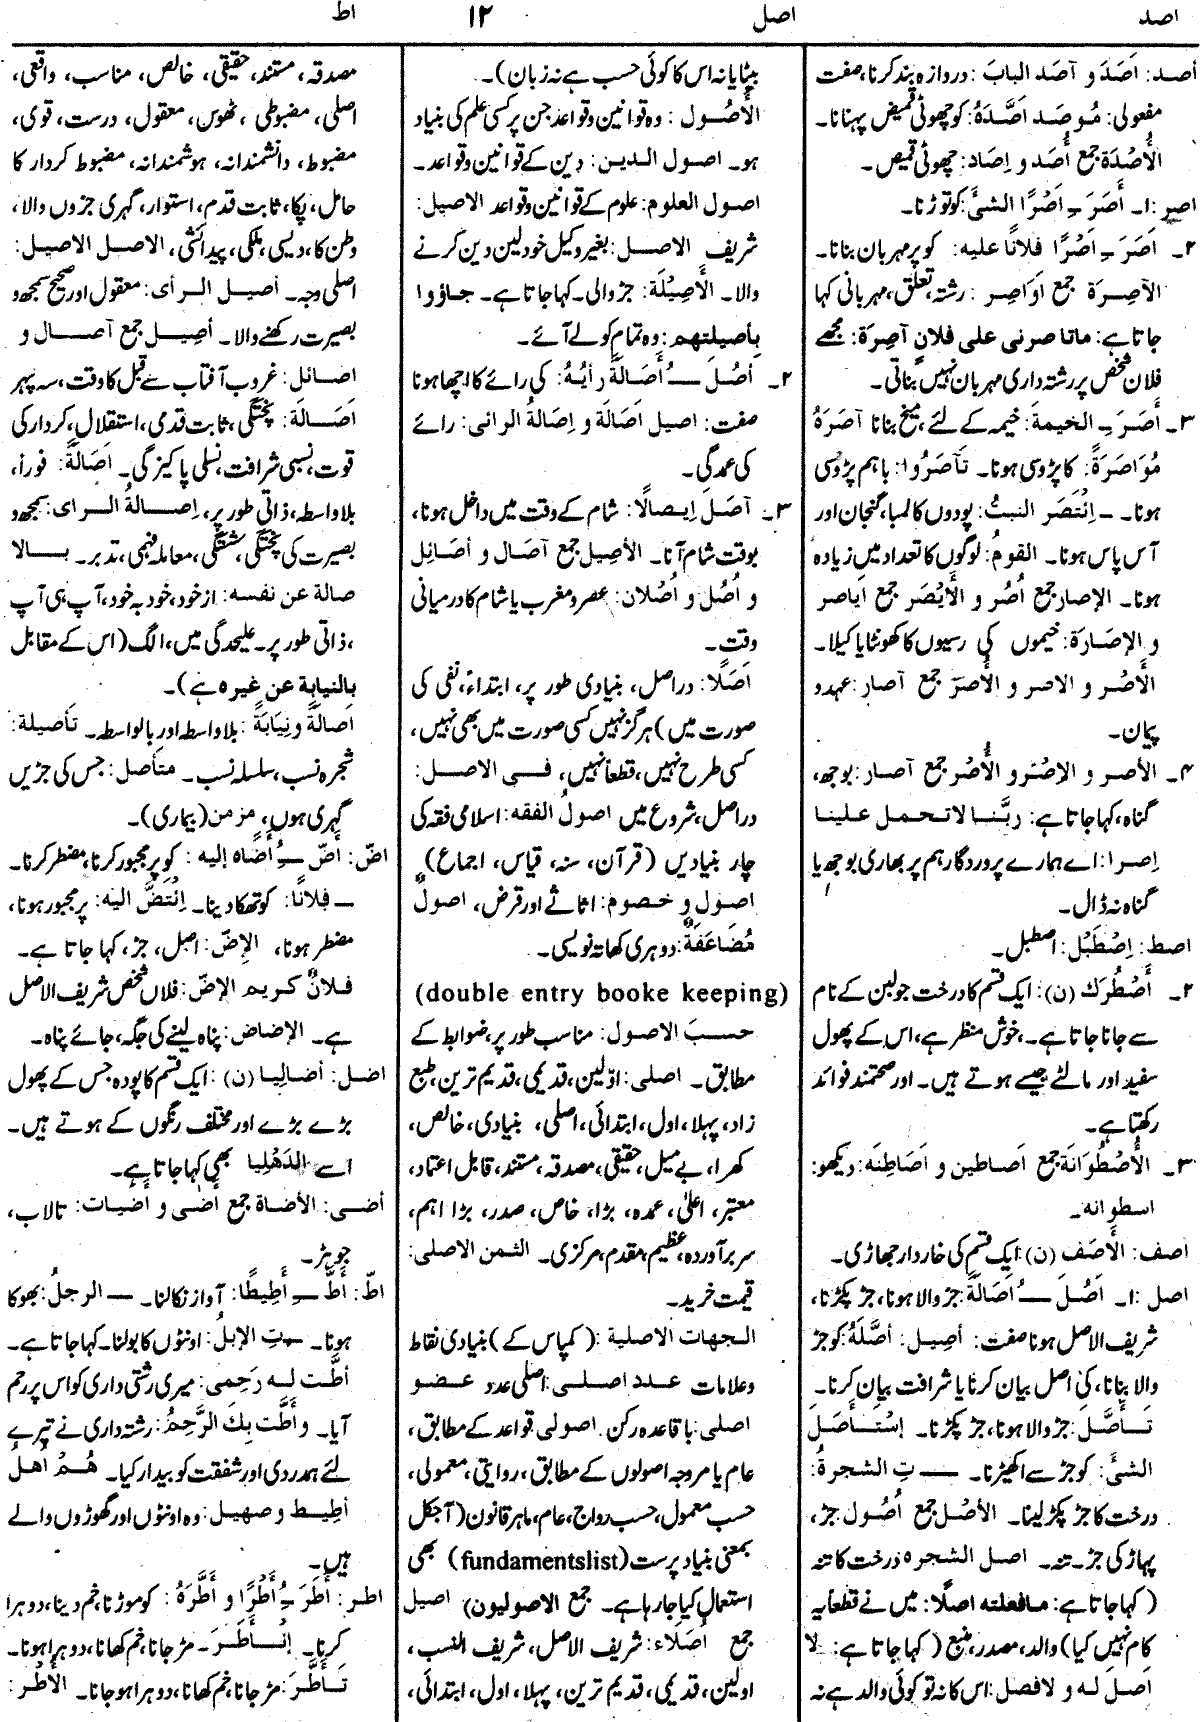 اصد
اصل
۱۲
اط
أصد: اَصَدَ و آصَد البابَ: دروازہ بند کرنا، صفت
مفعولی: مُوصَد اَصَّدَهُ: کو چھوٹی قمیض پہنانا۔
الاُصْدَة جمع أُصَد و إصَاد: چھوٹی قمیص۔
اصر: ۱۔ أَصَرَ ـِ اَصْرًا الشیَٔ: کو توڑنا۔
۲۔ اَصَرَ ـِ اَصْرًا فلانًا علیه: کو پر مہربان بنانا۔
الآصِرَة جمع اَوَاصِر: رشتہ، تعلق، مہربانی کہا
جاتا ہے: ماتا صرنی علی فلانٍ آصِرَة: مجھے
فلان شخص پر رشتہ داری مہربان نہیں بناتی۔
۳۔ أَصَرَ ـِ الخیمةَ: خیمہ کے لئے، میخ بنانا آصَرَهُ
مُوَاصَرَةً: کا پڑوسی ہونا۔ تَآصَرُوا: باہم پڑوسی
ہونا۔ ــ اِئْتَصَر النبتُ: پودوں کا لمبا، گنجان اور
آس پاس ہونا۔ القومُ: لوگوں کا تعداد میں زیادہ
ہونا۔ الإصار جمع اُصُر و الأَیْصَر جمع اَیاصر
و الإصَارَة: خیموں کی رسیوں کا کھونٹا یا کیلا۔
الأَصْر و الاصر و الأُصر جمع آصار: عہد و
پیمان۔
۴۔ الأصر و الاِصْر و الأُصْر جمع آصار: بوجھ،
گناہ، کہا جاتا ہے: ربَّنا لا تحمل علینا
إصرا: اے ہمارے پروردگار ہم پر بھاری بوجھ یا
گناہ نہ ڈال۔
اصط: اِصْطَبْل: اصطبل۔
۲۔ أَصْطُرَك (ن): ایک قسم کا درخت جو لبن کے نام
سے جانا جاتا ہے۔، خوش منظر ہے، اس کے پھول
سفید اور مالٹے جیسے ہوتے ہیں۔ اور صحتمند فوائد
رکھتا ہے۔
۳۔ الأُصْطُوَانَة جمع اَصاطین و اَصَاطِنَه: دیکھو:
اسطوانه۔
اصف: الأَصَف (ن): ایک قسم کی خاردار جھاڑی۔
اصل: ۱۔ اَصُلَ ــُ اَصَالَةً: جڑ والا ہونا، جڑ پکڑنا،
شریف الاصل ہونا صفت: أصِیل: أَصَّلَهُ: کو جڑ
والا بنانا، کی اصل بیان کرنا یا شرافت بیان کرنا۔
تَأَصَّلَ: جڑ والا ہونا، جڑ پکڑنا۔ اِسْتَأصَلَ
الشیَٔ: کو جڑ سے اکھیڑنا۔ ــ تِ الشجرةُ:
درخت کا جڑ پکڑ لینا۔ الأصْل جمع أُصُول جڑ،
پہاڑ کی جڑ۔ تنہ۔ اصل الشجرہ درخت کا تنہ
(کہا جاتا ہے: مافعلته اصلًا: میں نے قطعا یہ
کام نہیں کیا) والد، مصدر، منبع (کہا جاتا ہے: لا
اَصلَ لَه و لا فصل: اس کا نہ تو کوئی والد ہے نہ
بیٹا یا نہ اس کا کوئی حسب ہے نہ زبان)۔
الأُصُول: وہ قوانین و قواعد جن پر کسی علم کی بنیاد
ہو۔ اصول الدین: دین کے قوانین و قواعد۔
اصول العلوم: علوم کے قوانین و قواعد الاصیل:
شریف الاصل: بغیر وکیل خود لین دین کرنے
والا۔ الأَصِیْلَة: جڑ والی۔ کہا جاتا ہے۔ جاؤوا
بأصیلتهم: وہ تمام کو لے آئے۔
۲۔ أصُلَ ــُ أَصَالَةً رأیُهُ: کی رائے کا اچھا ہونا
صفت: اصیل اَصَالَة و إصَالةُ الرائی: رائے
کی عمدگی۔
۳۔ آصَلَ اِیصالًا: شام کے وقت میں داخل ہونا،
بوقت شام آنا۔ الأصِیل جمع آصَال و أصَائِل
و أُصُل و اُصْلان: عصر و مغرب یا شام کا درمیانی
وقت۔
اَصَلًا: دراصل، بنیادی طور پر، ابتداءً، نفی کی
صورت میں) ہرگز نہیں کسی صورت میں بھی نہیں،
کسی طرح نہیں، قطعاً نہیں، فی الاصل:
دراصل، شروع میں اصولُ الفقه: اسلامی فقہ کی
چار بنیادیں (قرآن، سنہ، قیاس، اجماع)
اصول و خصوم: اثاثے اور قرض، اصولٌ
مُضَاعَفَةٌ: دوہری کھاتہ نویسی۔
(double entry booke keeping)
حسبَ الاصول: مناسب طور پر، ضوابط کے
مطابق۔ اصلی: اوّلین، قدیمی، قدیم ترین، طبع
زاد، پہلا، اول، ابتدائی، اصلی، بنیادی، خالص،
کھرا، بے میل، حقیقی، مصدقہ، مستند، قابل اعتماد،
معتبر، اعلیٰ، عمدہ، بڑا، خاص، صدر، بڑا اہم،
سر برآوردہ، عظیم، مقدم، مرکزی۔ الثمن الاصلی:
قیمت خرید۔
الجهات الاصلیة: (کمپاس کے) بنیادی نقاط
و علامات عدد اصلی: اصلی عدد عضو
اصلی: با قاعدہ رکن۔ اصولی قواعد کے مطابق،
عام یا مروجہ اصولوں کے مطابق، روایتی، معمولی،
حسب معمول، حسب رواج، عام، ماہر قانون (آجکل
بمعنی بنیاد پرست (fundamentslist) بھی
استعمال کیا جا رہا ہے۔ جمع الاصولیون) اصیل
جمع اُصَلاء: شریف الاصل، شریف النسب،
اولین، قدیمی، قدیم ترین، پہلا، اول، ابتدائی،
مصدقہ، مستند، حقیقی، خالص، مناسب، واقعی،
اصلی، مضبوطی، ٹھوس، معقول، درست، قوی،
مضبوط، دانشمندانہ، ہوشمندانہ، مضبوط کردار کا
حامل، پکا، ثابت قدم، استوار، گہری جڑوں والا،
وطن کا، دیسی، ملکی، پیدائشی، الاصل الاصیل:
اصلی وجہ۔ أصیل الرأی: معقول اور صحیح سمجھ و
بصیرت رکھنے والا۔ أصِیل جمع آصال و
اصائل: غروب آفتاب سے قبل کا وقت، سہ پہر
اَصَالَة: پختگی، ثابت قدمی، استقلال، کردار کی
قوت، نسبی شرافت، نسلی پاکیزگی۔ اَصَالَةً: فوراً،
بلا واسطہ، ذاتی طور پر، إصالةُ الرای: سمجھ و
بصیرت کی پختگی، شستگی، معاملہ فہمی، تدبر۔ بالا
صالة عن نفسه: از خود، خود بہ خود، آپ ہی آپ
،ذاتی طور پر۔ علیحدگی میں، الگ (اس کے مقابل
بالنیابة عن غیرہ ہے)۔
اَصالَةً و نِیَابَةً: بلا واسطہ اور بالواسطہ۔ تأصیلة:
شجرہ نسب، سلسلہ نسب۔ متأصل: جس کی جڑیں
گہری ہوں، مزمن (بیماری)۔
اضّ: أضّ ــُ أَضًّاه إلیه: کو پر مجبور کرنا، مضطر کرنا۔
ــ فلانًا: کو تھکا دینا۔ اِئْتَضَّ الیه: پر مجبور ہونا،
مضطر ہونا، الإضّ: اصل، جڑ، کہا جاتا ہے۔
فلانٌ کریم الإضّ: فلاں شخص شریف الاصل
ہے۔ الإضاض: پناہ لینے کی جگہ، جائے پناہ۔
اضل: أضالِیا (ن): ایک قسم کا پودہ جس کے پھول
بڑے بڑے اور مختلف رنگوں کے ہوتے ہیں۔
اسے الدَهْلِیا بھی کہا جاتا ہے۔
أضی: الأضاة جمع أَضًی و أضیات: تالاب،
جوہڑ۔
اطّ: أَطَّ ــِ أَطِیطًا: آواز نکالنا۔ ــ الرجلُ: بھوکا
ہونا۔ ــتِ الإبلُ: اونٹوں کا بولنا۔ کہا جاتا ہے۔
أطَّت له رَحِمی: میری رشتی داری کو اس پر رحم
آیا۔ و أَطَّت بِكَ الرَّحِمُ: رشتہ داری نے تیرے
لئے ہمدردی اور شفقت کو بیدار کیا۔ هُمْ اَهلُ
أطِیط و صهیل: وہ اونٹوں اور گھوڑوں والے
ہیں۔
اطر: أطَرَ ــُ أَطْرًا و أَطَّرَهُ: کو موڑنا، خم دینا، دوہرا
کرنا۔ اِنْأَطَرَ۔ مڑ جانا، خم کھانا، دوہرا ہونا۔
تَأطَّرَ: مڑ جانا، خم کھانا، دوہرا ہو جانا۔ الأَطْر: